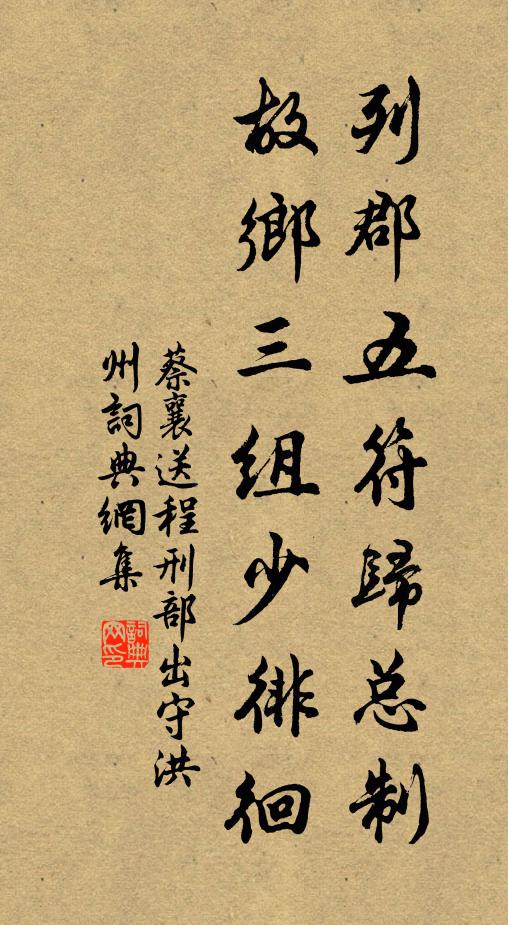 列郡五符歸总制
故鄉三組少徘徊
蔡襄送程刑部出守洪
州詞典網集
詞典
网印